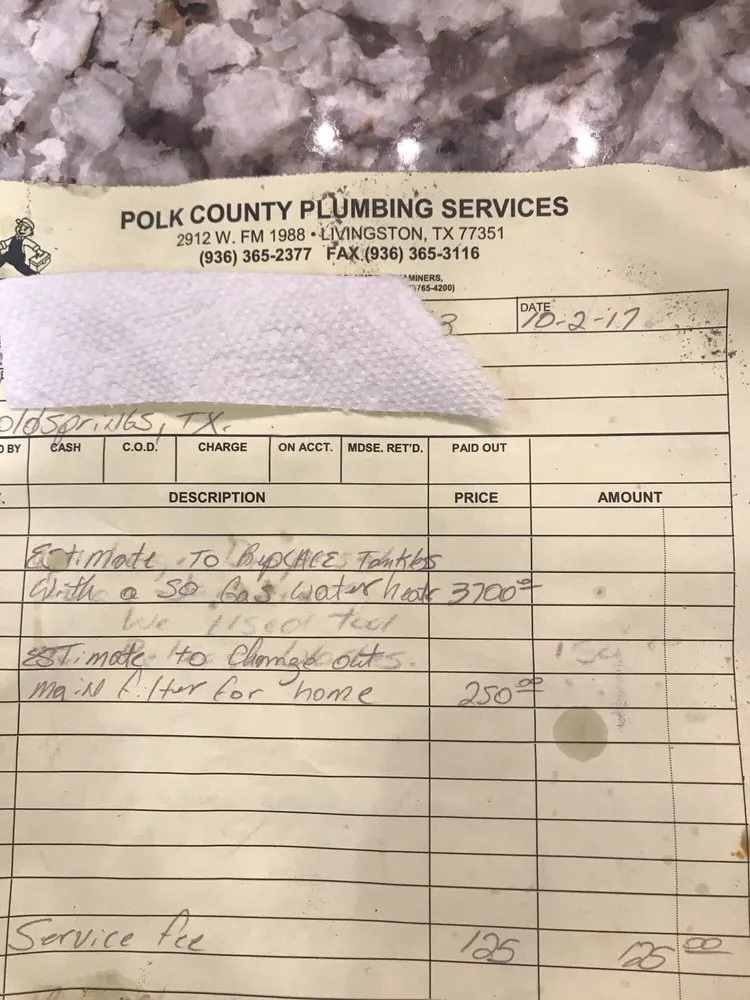 POLK COUNTY PLUMBING SERVICES
2912 W. FM 1988 • LIVINGSTON, TX 77351
(936) 365-2377 FAX (936) 365-3116
AMINERS,
765-4200)
3
DATE
10-2-17
oldsprings, TX.
D BY CASH C.O.D. CHARGE ON ACCT. MDSE. RET'D. PAID OUT
DESCRIPTION PRICE AMOUNT
Estimate To Replace Tankles
With a 50 Gas Water heater 3700 00
We used
Estimate to Change out
main filter for home 250 00
Service fee 125 25 00